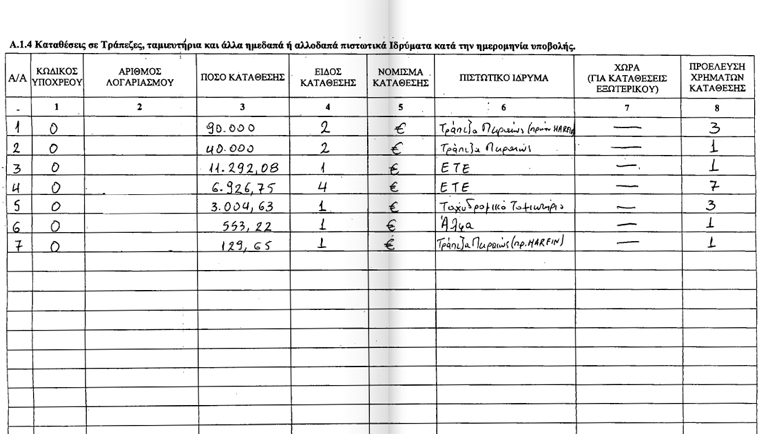 Α.1.4 Καταθέσεις σε Τράπεζες, ταμιευτήρια και άλλα ημεδαπά ή αλλοδαπά πιστωτικά Ιδρύματα κατά την ημερομηνία υποβολής.
Α/Α ΚΩΔΙΚΟΣ ΥΠΟΧΡΕΟΥ ΑΡΙΘΜΟΣ ΛΟΓΑΡΙΑΣΜΟΥ ΠΟΣΟ ΚΑΤΑΘΕΣΗΣ ΕΙΔΟΣ ΚΑΤΑΘΕΣΗΣ ΝΟΜΙΣΜΑ ΚΑΤΑΘΕΣΗΣ ΠΙΣΤΩΤΙΚΟ ΙΔΡΥΜΑ ΧΩΡΑ (ΓΙΑ ΚΑΤΑΘΕΣΕΙΣ ΕΞΩΤΕΡΙΚΟΥ) ΠΡΟΕΛΕΥΣΗ ΧΡΗΜΑΤΩΝ ΚΑΤΑΘΕΣΗΣ
1 2 3 4 5 6 7 8
1 0 90.000 2 € Τράπεζα Πειραιώς (πρώην MARFIN — 3
2 0 40.000 2 € Τράπεζα Πειραιώς — 1
3 0 11.292,08 1 € ΕΤΕ — 1
4 0 6.926,75 4 € ΕΤΕ — 7
5 0 3.004,63 1 € Ταχυδρομικό Ταμιευτήριο — 3
6 0 553,22 1 € Άλφα — 1
7 0 129,65 1 € Τράπεζα Πειραιώς (πρ. MARFIN) — 1